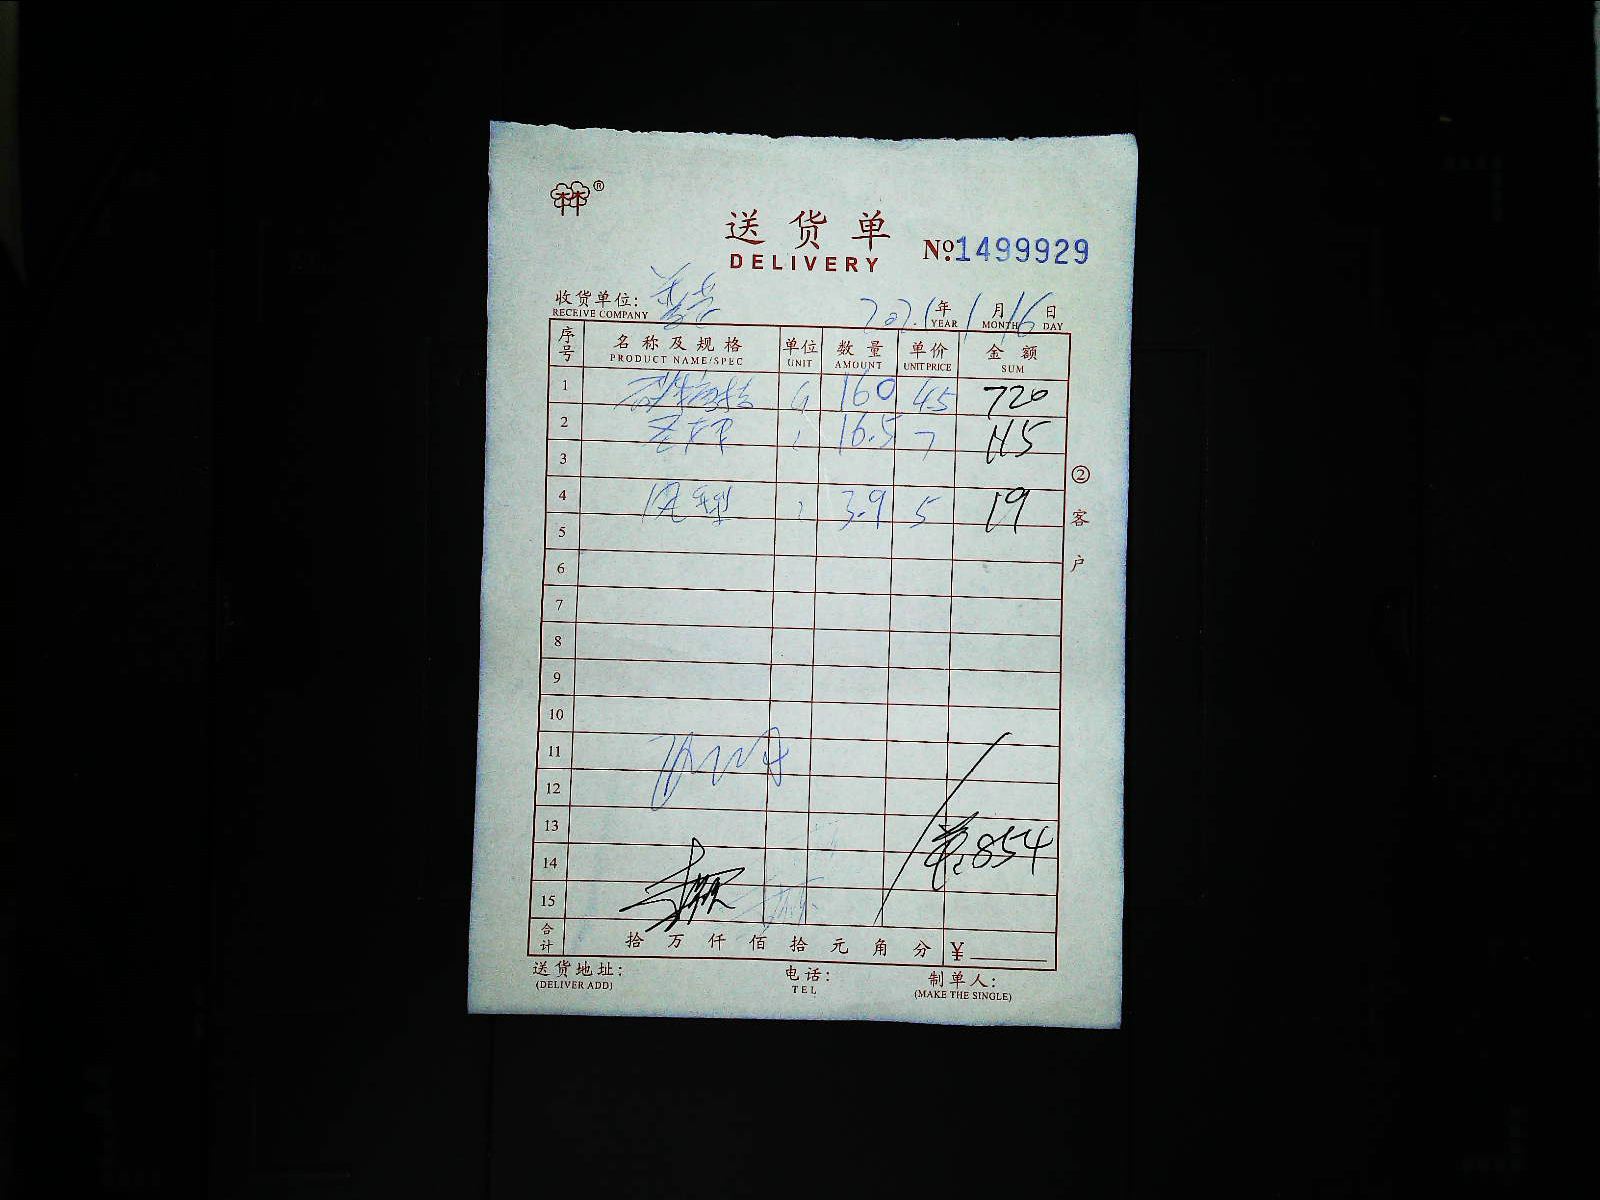 林®
送货单
DELIVERY
No.1499929
收货单位:
RECEIVE COMPANY
2021年1月16日
YEAR MONTH DAY
序号 名称及规格 单位 数量 单价 金额
PRODUCT NAME/SPEC UNIT AMOUNT UNIT PRICE SUM
1 160 4.5 720
2 16.5 7 115
3
4 3.9 5 19
5
6
7
8
9
10
11
12
13
854
14
15
合计 拾万仟佰拾元角分 ¥
②客户
送货地址: 电话: 制单人:
(DELIVER ADD) TEL (MAKE THE SINGLE)